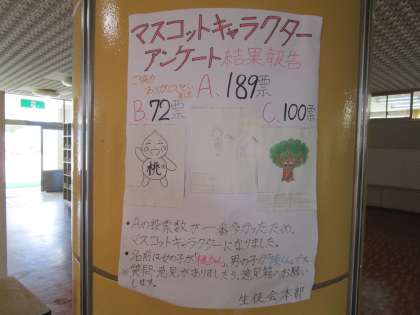 マスコットキャラクター
アンケート結果報告
ご協力
ありがとうございました
A、189票
B、72票
C、100票
桃
・Aの投票数が一番多かったため、
マスコットキャラクターになりました。
・名前は女の子が「桃ちゃん」、男の子が
です
※質問・意見がありましたら、意見箱にお願い
します。
生徒会本部